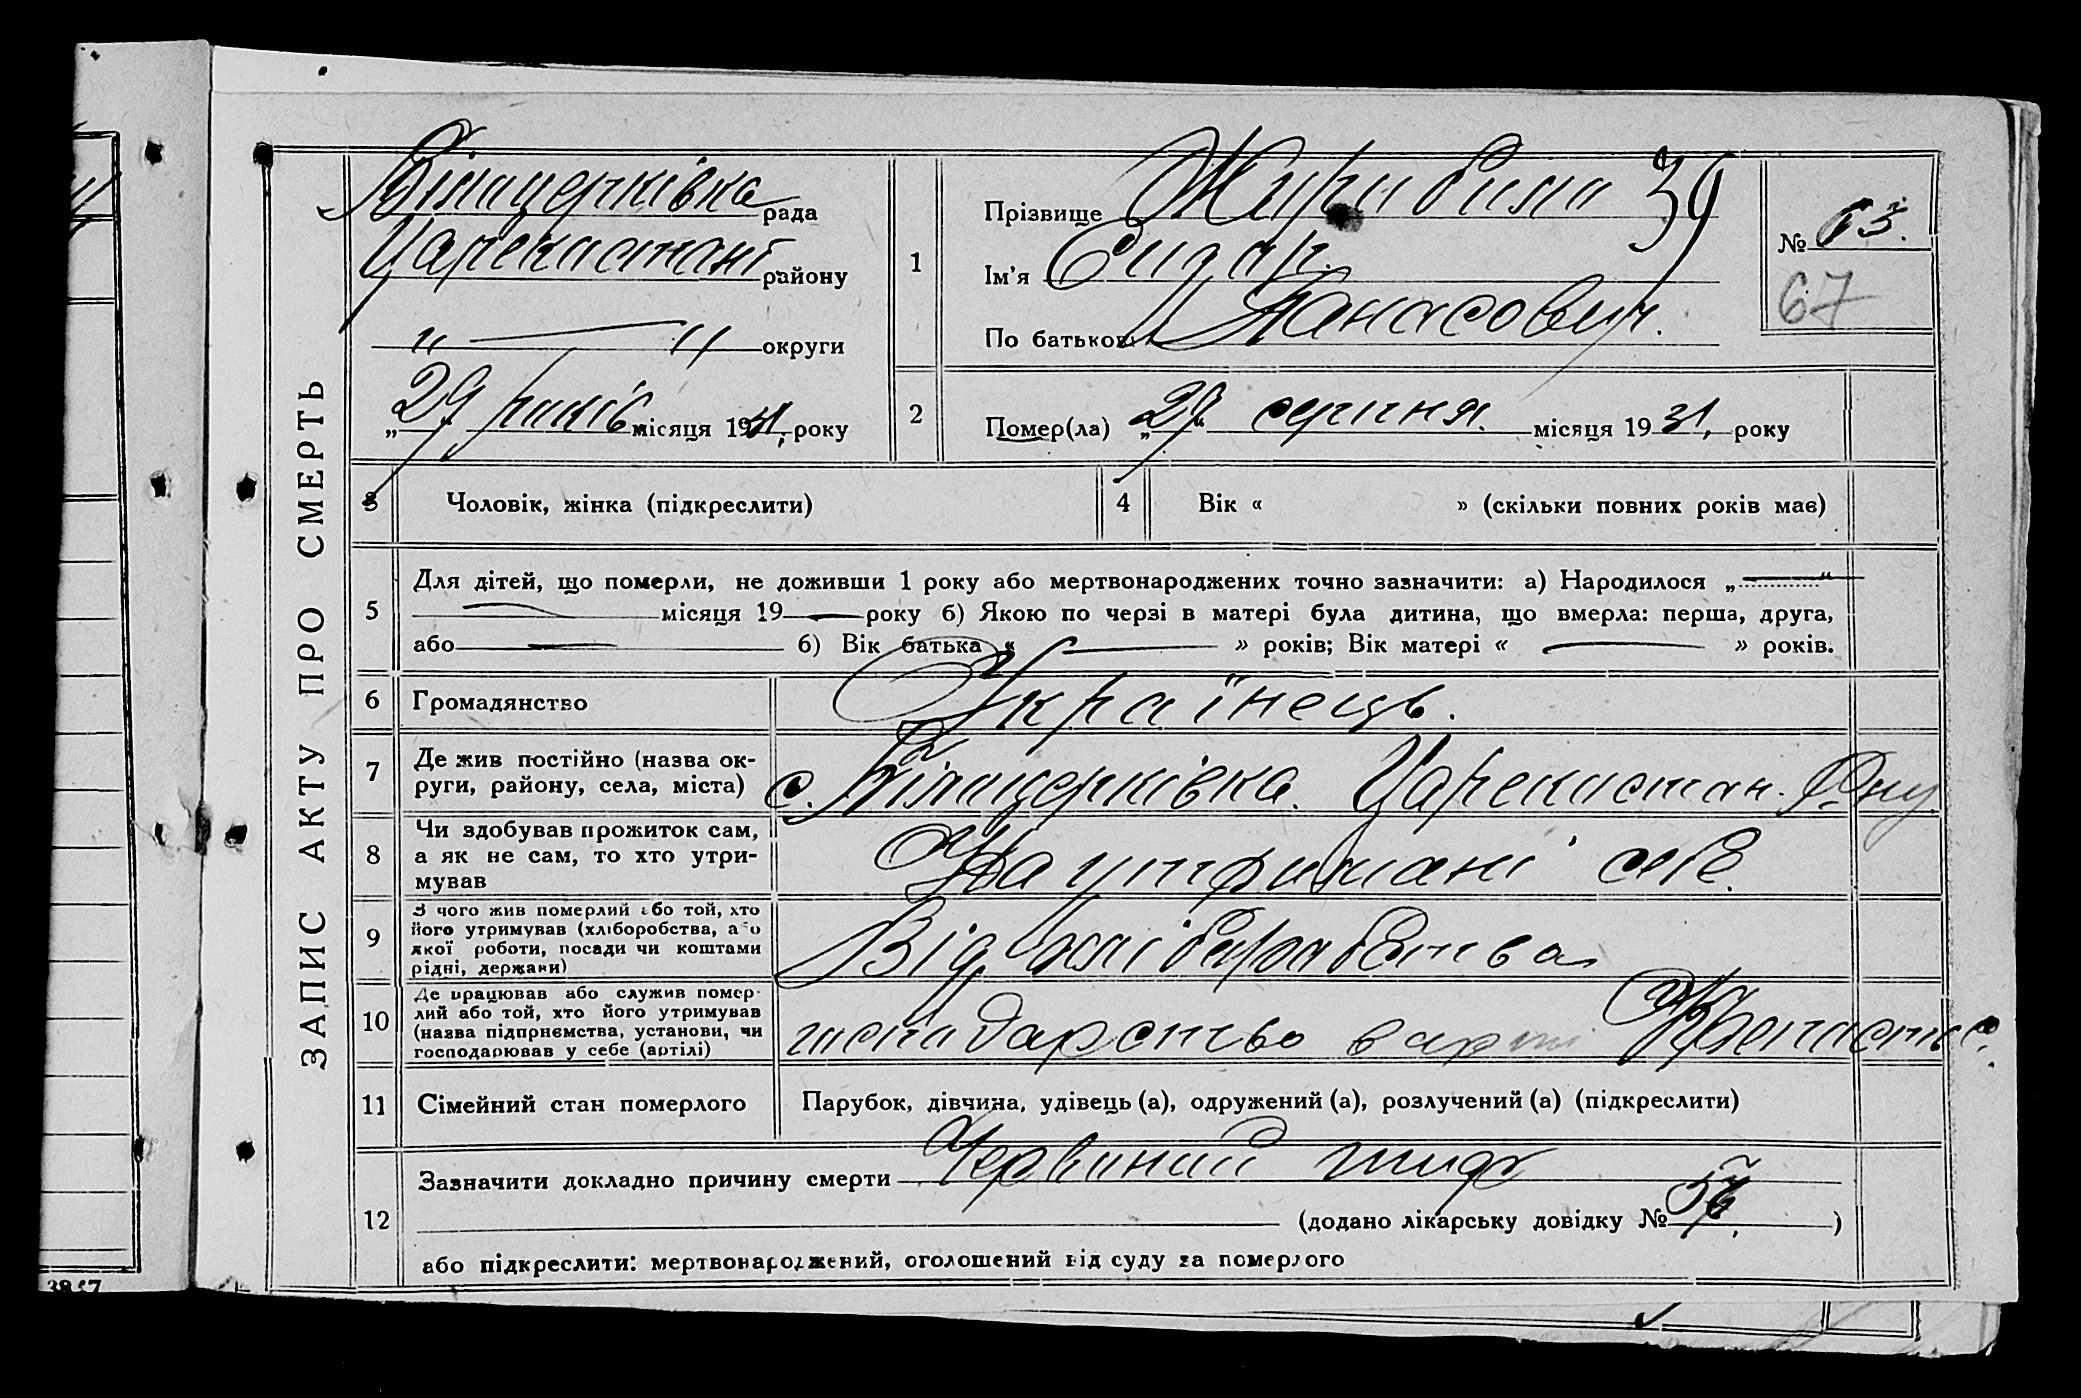 ЗАПИС АКТУ ПРО СМЕРТЬ
Біляцерківка рада
району
округи
„29 років місяця 1931, року
1
Прізвище 39
Ім'я Сидар.
По батькові Панасович.
№ 63.
67
2
Помер(ла) „29“ серпня. місяця 1931, року
3
Чоловік, жінка (підкреслити)
4
Вік « » (скільки повних років має)
5
Для дітей, що померли, не доживши 1 року або мертвонароджених точно зазначити: а) Народилося „ “
місяця 19 року б) Якою по черзі в матері була дитина, що вмерла: перша, друга,
або б) Вік батька « » років; Вік матері « » років.
6
Громадянство Українець.
7
Де жив постійно (назва ок-
руги, району, села, міста)
с. Біляцерківка.
8
Чи здобував прожиток сам,
а як не сам, то хто утри-
мував
На утримані себе.
9
З чого жив померлий або той, хто
його утримував (хліборобства, або
якої роботи, посади чи коштами
рідні, держави)
Від хліборобства
10
Де працював або служив помер-
лий або той, хто його утримував
(назва підприємства, установи, чи
господарював у себе (артілі)
господарство
11
Сімейний стан померлого
Парубок, дівчина, удівець (а), одружений (а), розлучений (а) (підкреслити)
12
Зазначити докладно причину смерти Червиний тиф
(додано лікарську довідку № )
або підкреслити: мертвонароджений, оголошений від суду за померлого